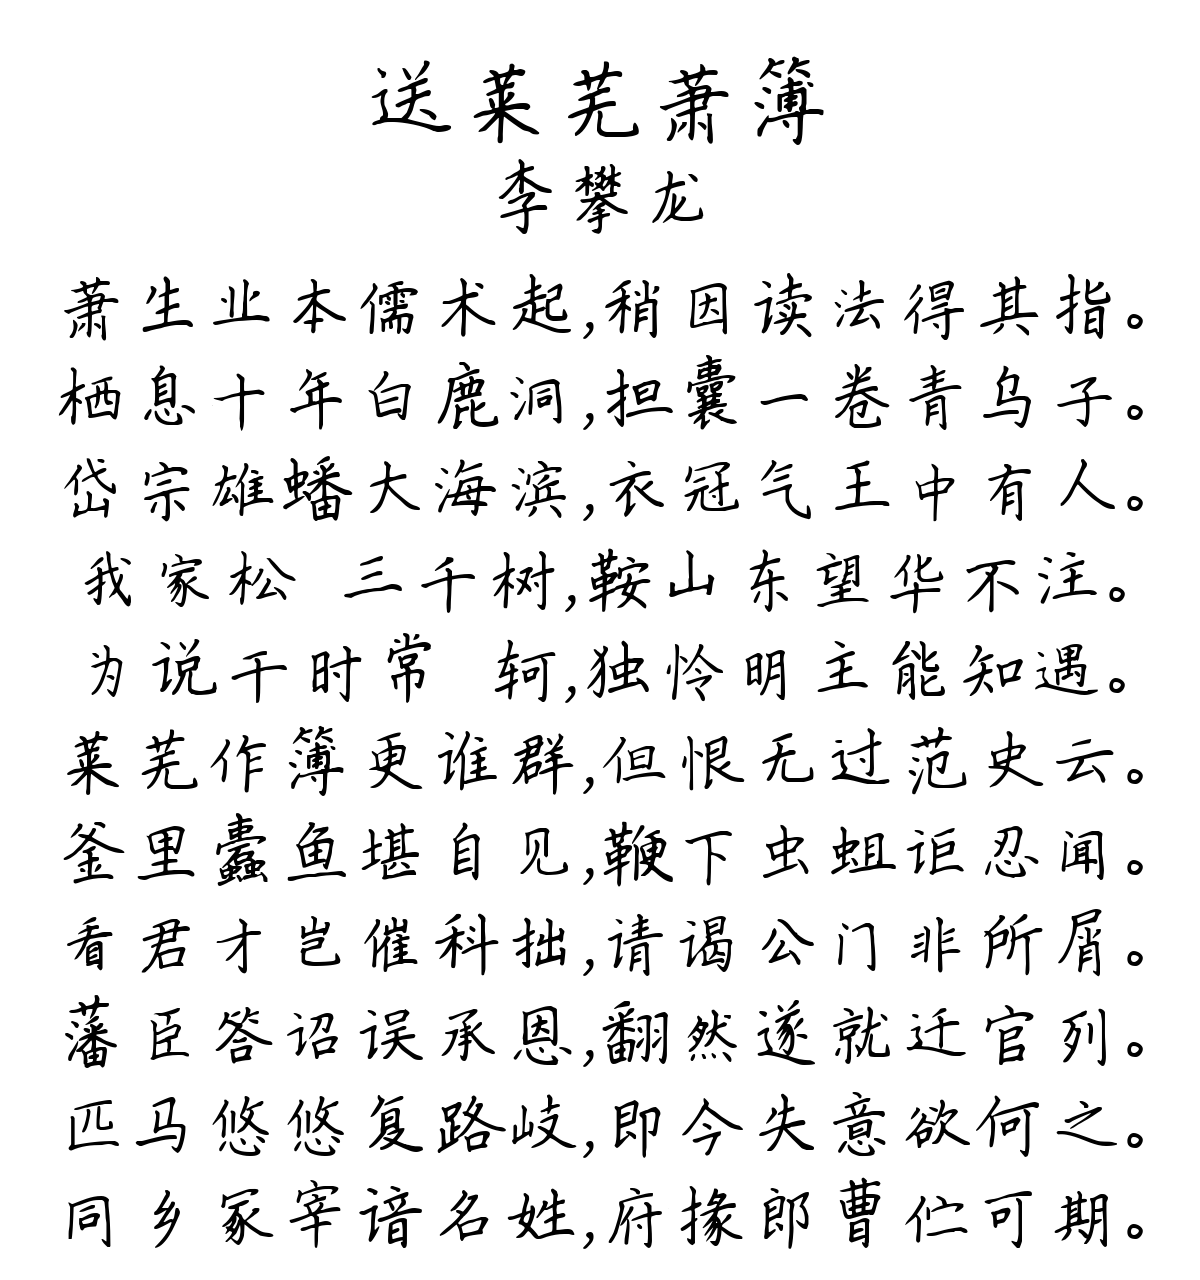 送莱芜萧簿
李攀龙
萧生业本儒术起,稍因读法得其指。
栖息十年白鹿洞,担囊一卷青乌子。
岱宗雄蟠大海滨,衣冠气王中有人。
我家松 三千树,鞍山东望华不注。
为说干时常 轲,独怜明主能知遇。
莱芜作簿更谁群,但恨无过范史云。
釜里蠹鱼堪自见,鞭下虫蛆讵忍闻。
看君才岂催科拙,请谒公门非所屑。
藩臣答诏误承恩,翻然遂就迁官列。
匹马悠悠复路岐,即今失意欲何之。
同乡冢宰谙名姓,府掾郎曹伫可期。